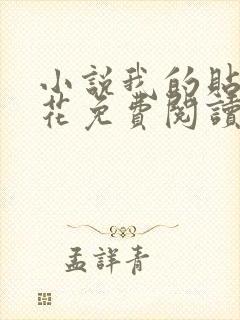 小說我的貼
花免費閱讀
孟詳青